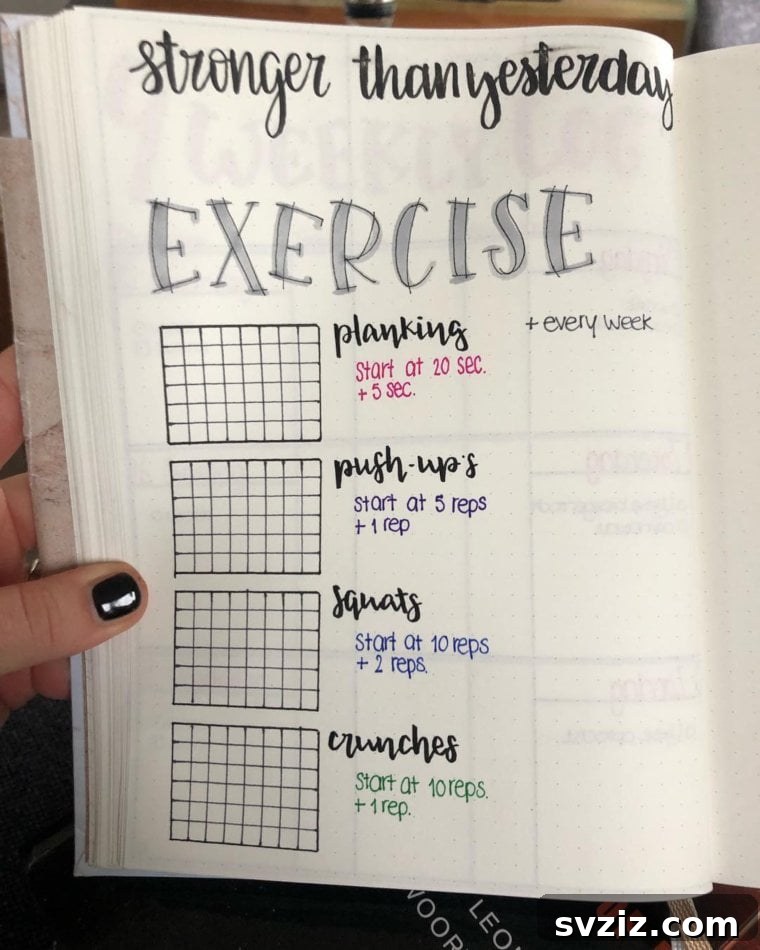 stronger than yesterday
EXERCISE
planking
+ every week
Start at 20 sec.
+ 5 sec.
push-up's
Start at 5 reps
+ 1 rep
squats
Start at 10 reps
+ 2 reps.
crunches
Start at 10 reps.
+ 1 rep.
svziz.com